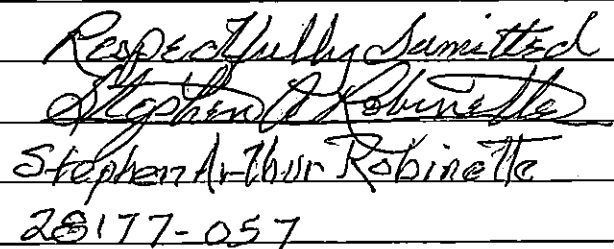 Respectfully Sumitted
Stephen A Robinette
Stephen Arthur Robinette
28177-057